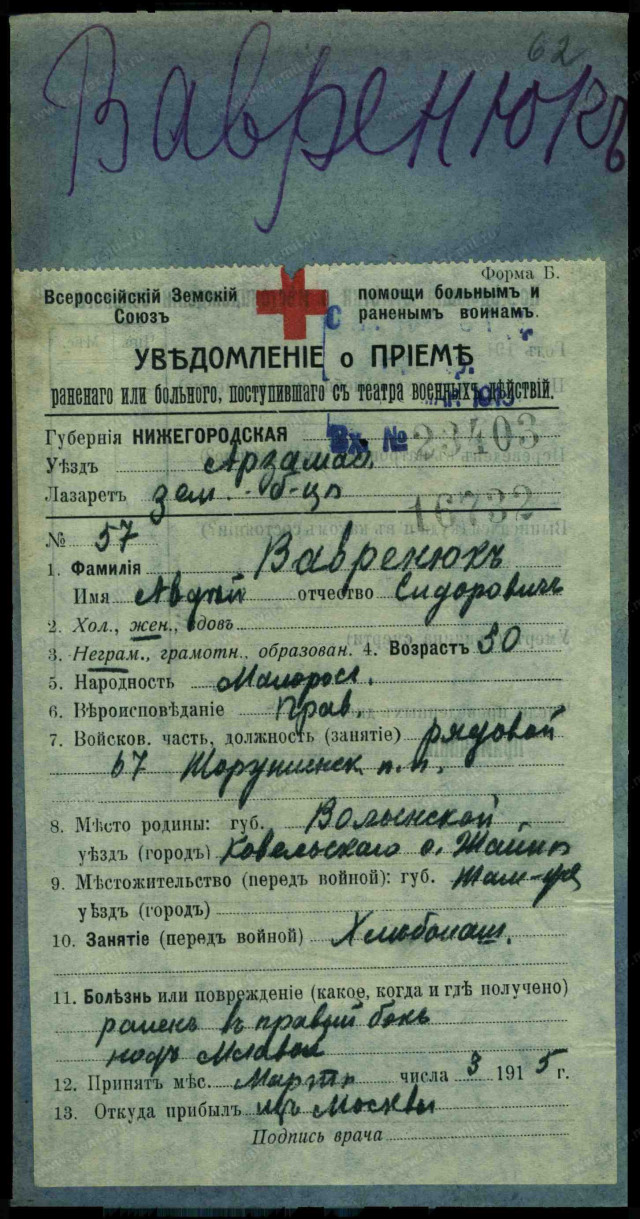 62
Вавренюкъ
Форма Б.
Всероссійскій Земскій помощи больнымъ и
Союзъ раненымъ воинамъ.
УВѢДОМЛЕНІЕ о ПРІЕМѢ
раненаго или больного, поступившаго съ театра военныхъ дѣйствій.
Губернія НИЖЕГОРОДСКАЯ Вх. № 23403
Уѣздъ Арзамас.
Лазаретъ зем. б-ца
16732
№ 57
1. Фамилія Вавренюкъ
Имя Авдей отчество Сидоровичъ
2. Хол., жен., вдовъ
3. Неграм., грамотн.. образован. 4. Возрастъ 30
5. Народность Малоросс.
6. Вѣроисповѣданіе Прав.
7. Войсков. часть, должность (занятіе) рядовой
67 п.п.
8. Мѣсто родины: губ. Волынской
уѣздъ (городъ) Ковельскаго с.
9. Мѣстожительство (передъ войной): губ. Там-же
уѣздъ (городъ)
10. Занятіе (передъ войной) Хлѣбопаш.
11. Болѣзнь или поврежденіе (какое, когда и гдѣ получено)
раненъ в правый бокъ
подъ Млавой
12. Принятъ мѣс. Марта числа 3 1915 г.
13. Откуда прибылъ изъ Москвы
Подпись врача